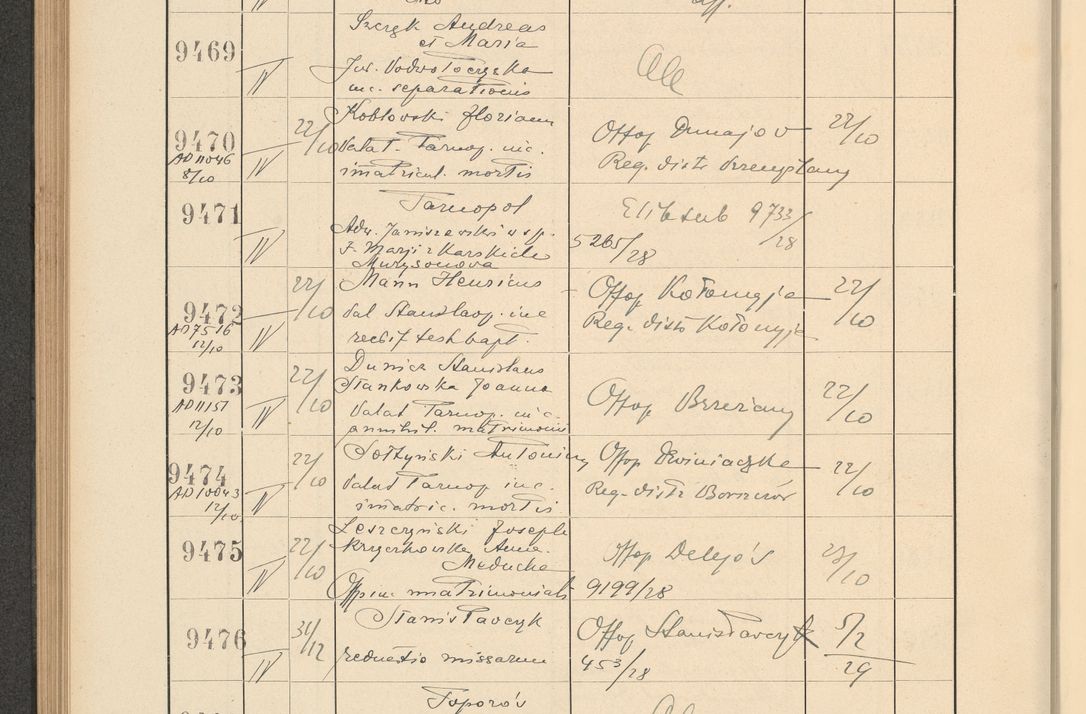 9469
Szczyk Andreas
et Maria
inc. separationis
9470
AD 11046
8/10
IV
22/10
Kozłowski Florian
Valat. Tarnop. inc.
imatricul. mortis
Offop Dunajov
Reg. distr Przemyślany
22/10
9471
IV
Tarnopol
Adv. Janiszewski
Elib sub 9733/28
5265/28
9472
AD 7516
12/10
IV
22/10
Mann Henricus
Val Stanislaop. inc
rectif test bapt.
Offop Kołomyja
Reg. distr Kołomyja
22/10
9473
AD 11151
12/10
IV
22/10
Dunicz Stanislaus
Stankowska Joanna
Valat Tarnop. inc.
annihil. matrimonii
Offop Brzeżany
22/10
9474
AD 10043
12/10
IV
22/10
Sołtyński Antonius
Valat Tarnop inc.
imatric. mortis
Offop Dzwiniaczka
Reg. distr Borszczów
22/10
9475
IV
22/10
Leszczyński Joseph
Krychowska Anna.
Meducha
Offp inc matrimonialis
Offop Delejów
9199/28
23/10
9476
IV
31/12
Stanisławczyk
reductio missarum
Offop Stanisławczyk
453/28
5/2
29
Toporów